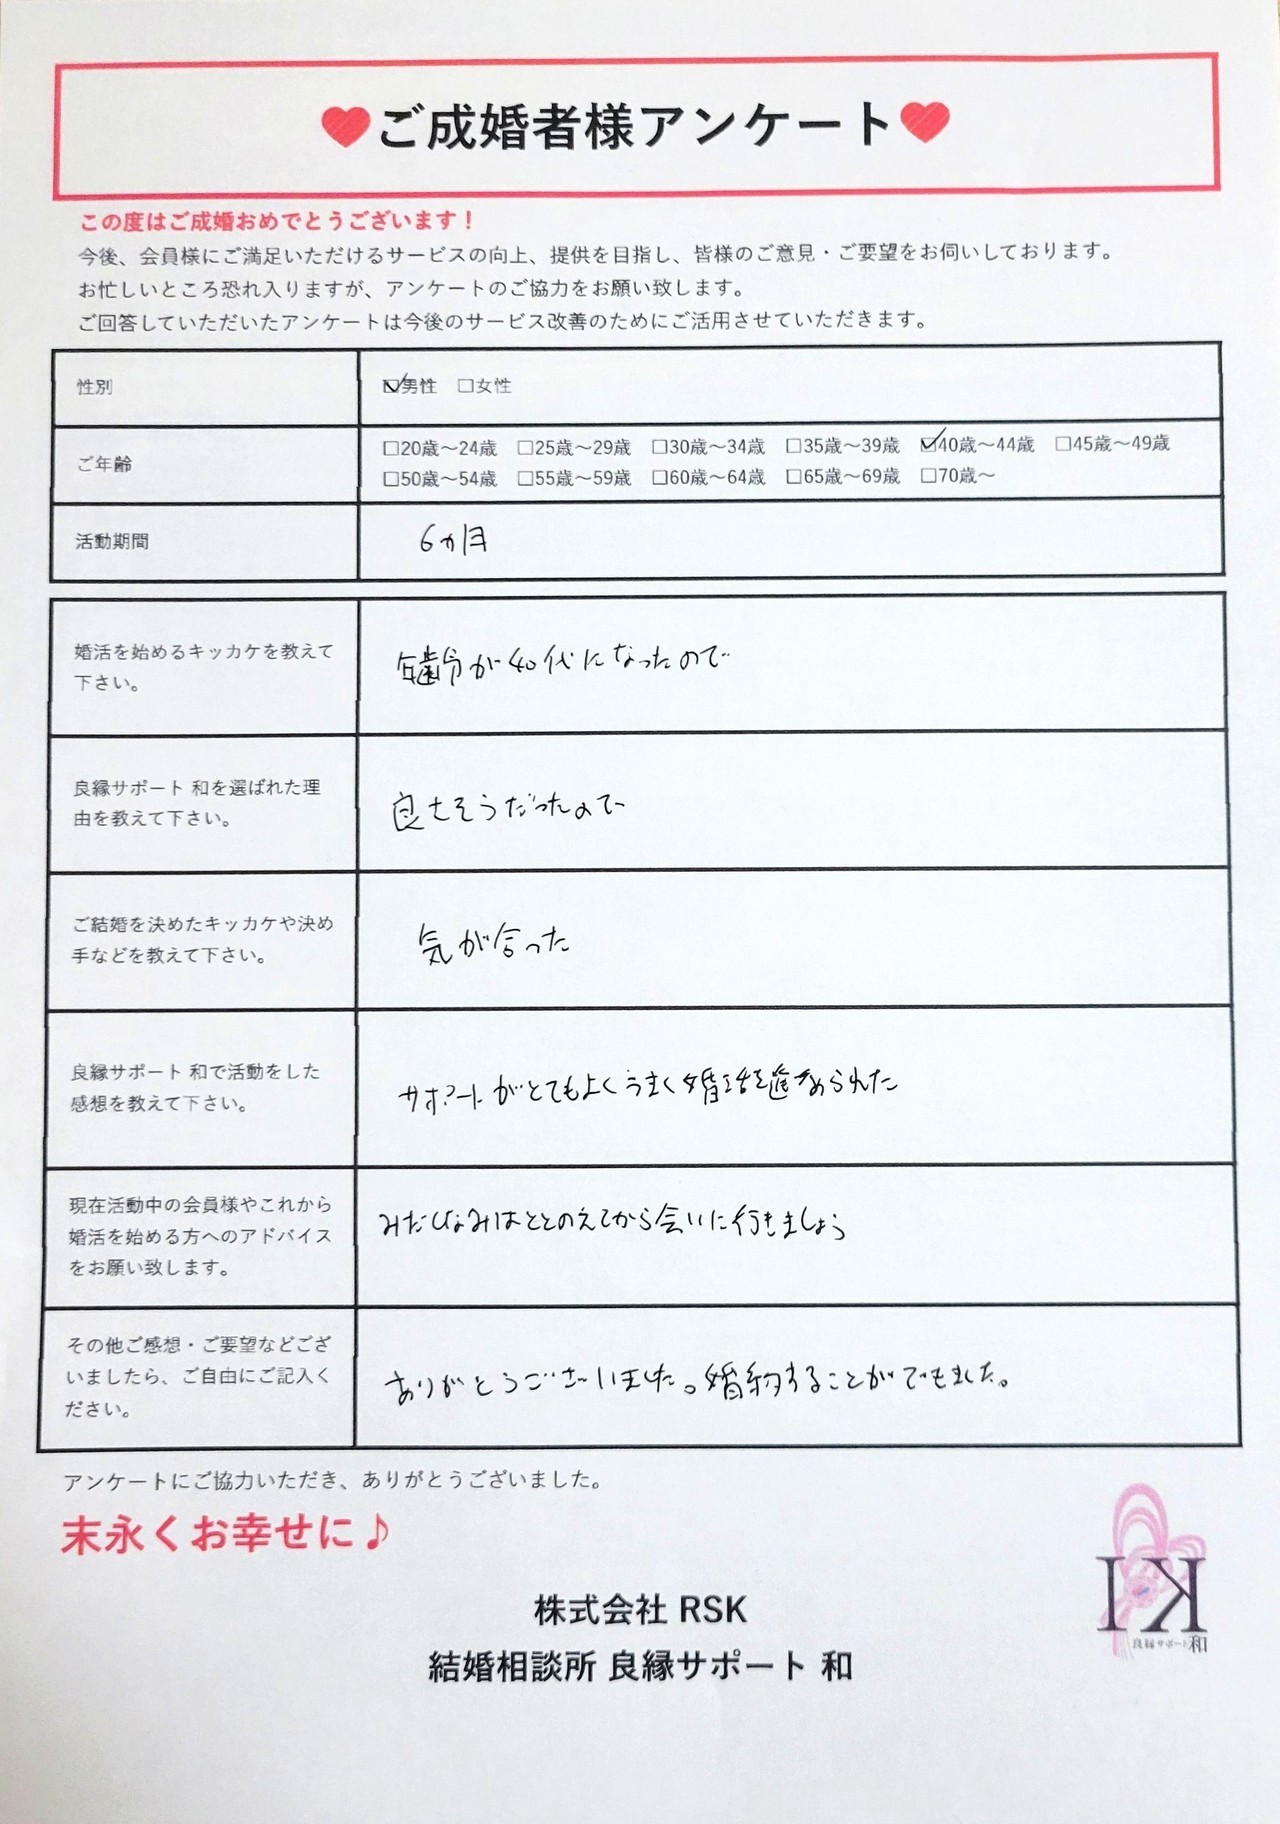 ♥ご成婚者様アンケート♥
この度はご成婚おめでとうございます！
今後、会員様にご満足いただけるサービスの向上、提供を目指し、皆様のご意見・ご要望をお伺いしております。
お忙しいところ恐れ入りますが、アンケートのご協力をお願い致します。
ご回答していただいたアンケートは今後のサービス改善のためにご活用させていただきます。
性別
☑男性 □女性
ご年齢
□20歳～24歳 □25歳～29歳 □30歳～34歳 □35歳～39歳 ☑40歳～44歳 □45歳～49歳
□50歳～54歳 □55歳～59歳 □60歳～64歳 □65歳～69歳 □70歳～
活動期間
6か月
婚活を始めるキッカケを教えて
下さい。
年齢が40代になったので
良縁サポート 和を選ばれた理
由を教えて下さい。
良さそうだったので
ご結婚を決めたキッカケや決め
手などを教えて下さい。
気が合った
良縁サポート 和で活動をした
感想を教えて下さい。
サポートがとてもよくうまく婚活を進められた
現在活動中の会員様やこれから
婚活を始める方へのアドバイス
をお願い致します。
みだしなみはととのえてから会いに行きましょう
その他ご感想・ご要望などござ
いましたら、ご自由にご記入く
ださい。
ありがとうございました。婚約することができました。
アンケートにご協力いただき、ありがとうございました。
末永くお幸せに♪
株式会社 RSK
結婚相談所 良縁サポート 和
良縁サポート和